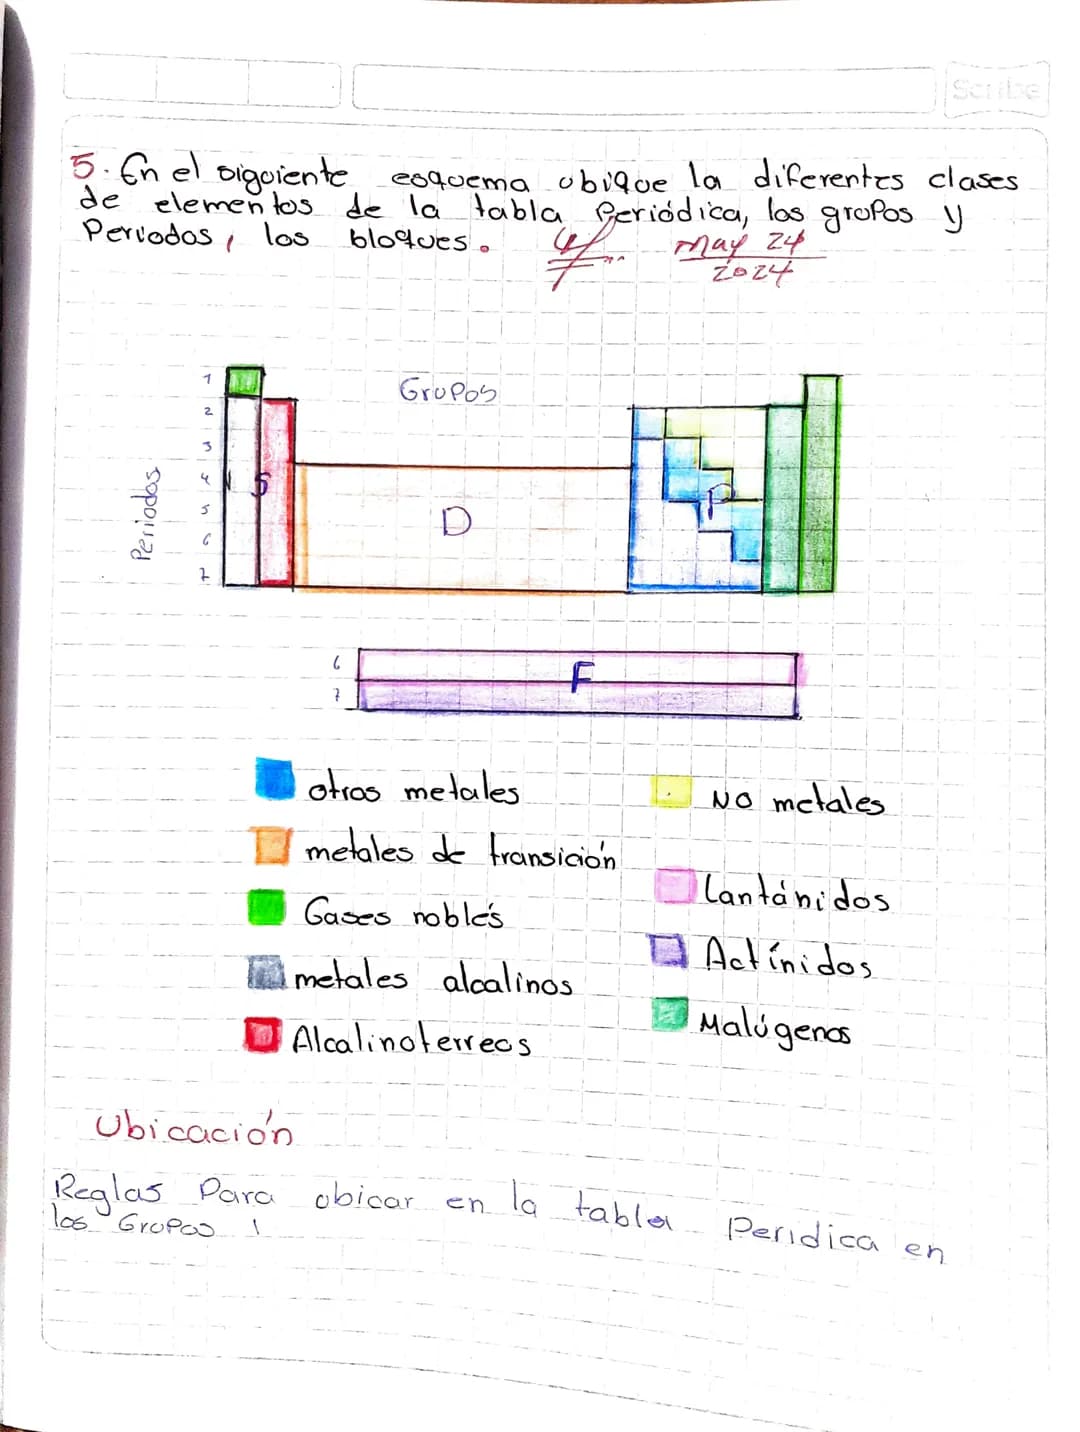 Scribe
5. En el siguiente esquema ubique la diferentes clases
de elementos de la tabla Periódica, los grupos y
Periodos, los bloques.
May 24
2024
Grupos
Periodos
1
2
3
4
5
6
7
S
D
P
6
7
F
otros metales
No metales
metales de transición
Lantánidos
Gases nobles
Actínidos
metales alcalinos
Malógenos
Alcalinoterreos
Ubicación
Reglas Para ubicar en la tabla Peridica en
los Grupos